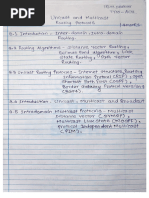 Unicast and Multicast
Routing Protocols
4.1 Introduction - Inter-domain, Intra-domain
Routing
4.2 Routing Algorithms - Distance Vector Routing,
Bellman Ford Algorithm, Link
State Routing, Path Vector
Routing.
4.3 Unicast Routing Protocols - Internet Structure, Routing
Information Protocol (RIP), Open
Shortest Path First (OSPF),
Border Gateway Protocol version 4
(BGP4)
4.4 Introduction - Unicast, Multicast and Broadcast
4.5 Intradomain Multicast Protocols - Multicast
Distance Vector (DVMRP),
Multicast Link State (MOSPF),
Protocol Independent Multicast
(PIM)